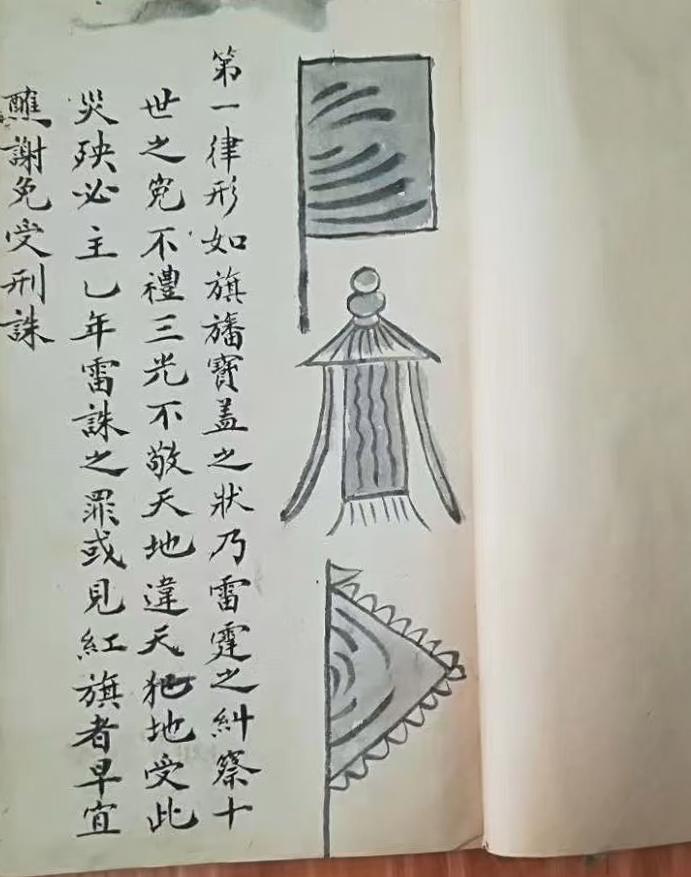 第一律形如旗旛寶盖之狀乃雷霆之糾察十
世之寃不禮三光不敬天地違天犯地受此
災殃必主乚年雷誅之罪或見紅旗者早宜
醮謝免受刑誅